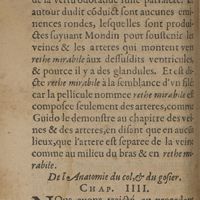 autour dudit conduict sont aucunes emi
nences rondes, lesquelles sont produi
ctes suyuant Mondin pour soustenir les
veines & les arteres qui montent uen
rethe mirabile aux dessusdits ventricules.
& pource il y a des glandules. Et est dic
rethe mirabile à la semblance d'vn filé
car la pellicule nommee rethe mirabile est
composee seulement des arteres, comme
Guido le demonstre au chapitre des vei
nes & des arteres, en disant que en aucu
lieux, que l'artere est separee de la veine
comme au milieu du bras & en rethe mi
rabile.
De l'Anatomie du col, & du gosier.
CHAP. IIII.